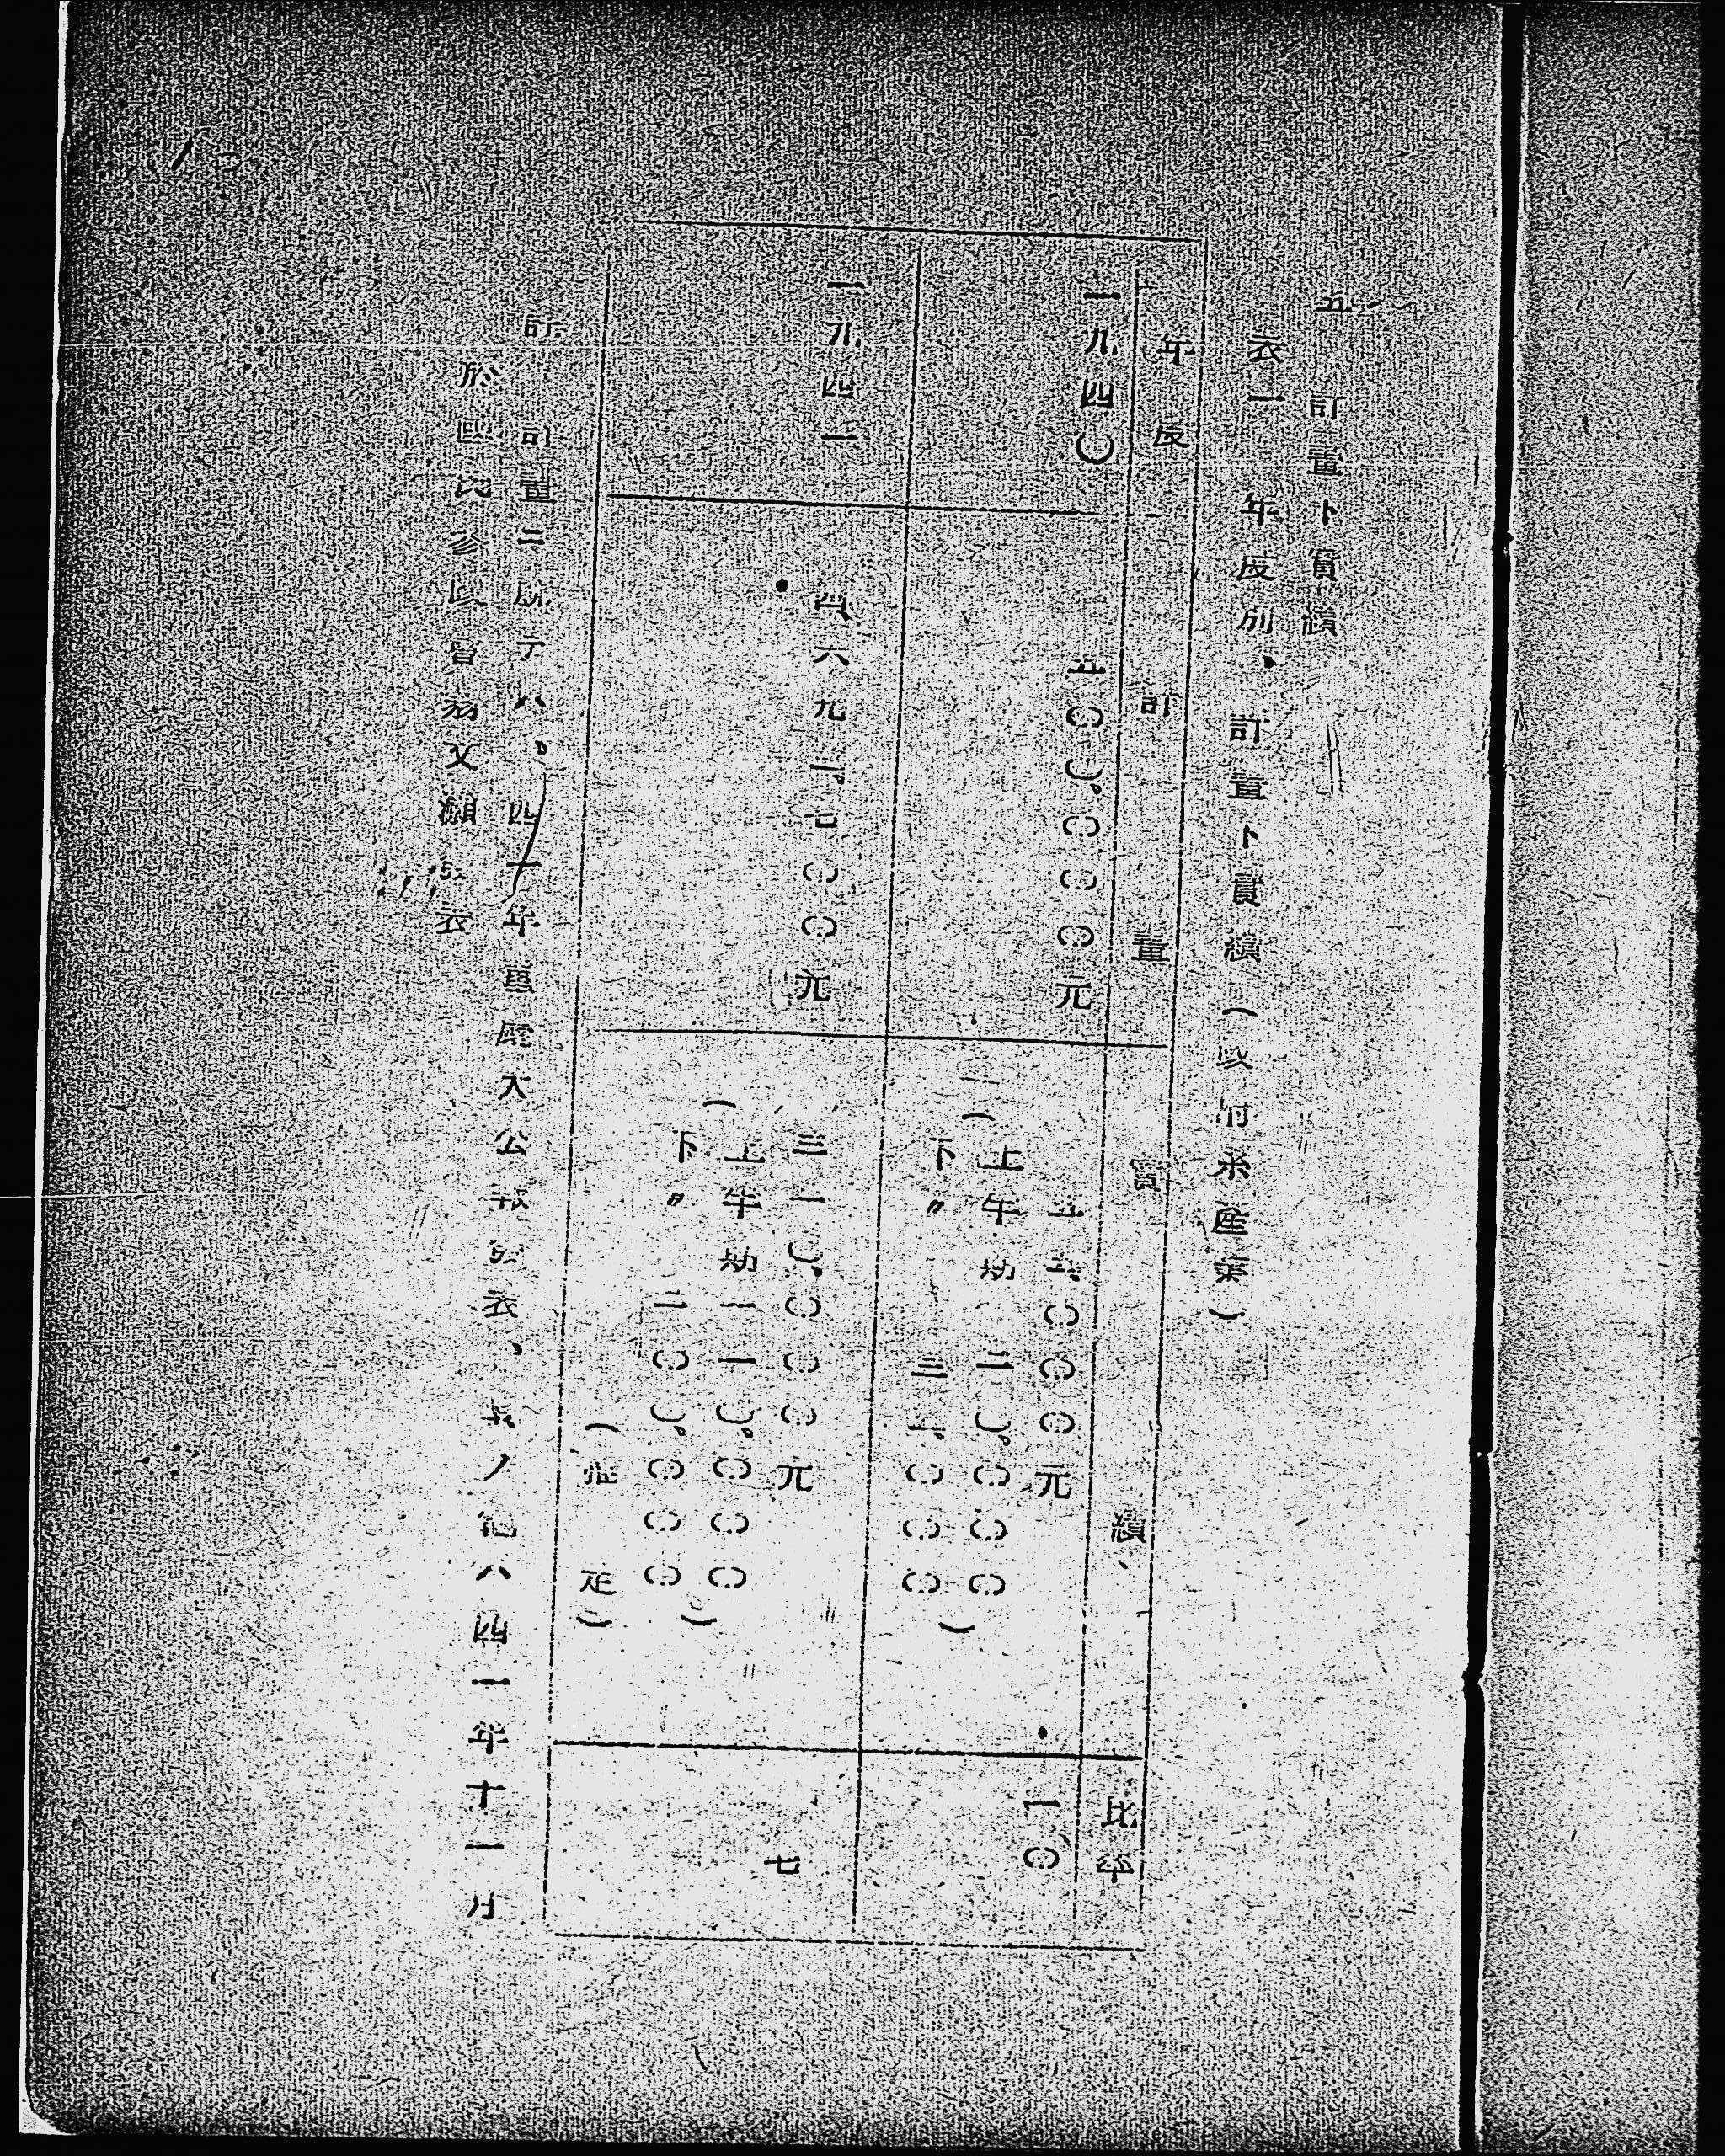 五、計畫ト實績
表一 年度別、計畫ト實績（政府系産業）
年度 計畫 實績 比率
一九四〇 五〇〇、〇〇〇元 五 、〇〇〇元 一〇〇
（上半期 二〇、〇〇〇
下〃 三 、〇〇〇）
一九四一 四六九 、七〇〇元 三一〇、〇〇〇元 七
（上半期 一一〇、〇〇〇
下〃 二〇〇、〇〇〇）
（推定）
計畫ニ就テハ。四十年 度大公報發表、其ノ他ハ四一年十一月
於國民參政會翁文灝發表